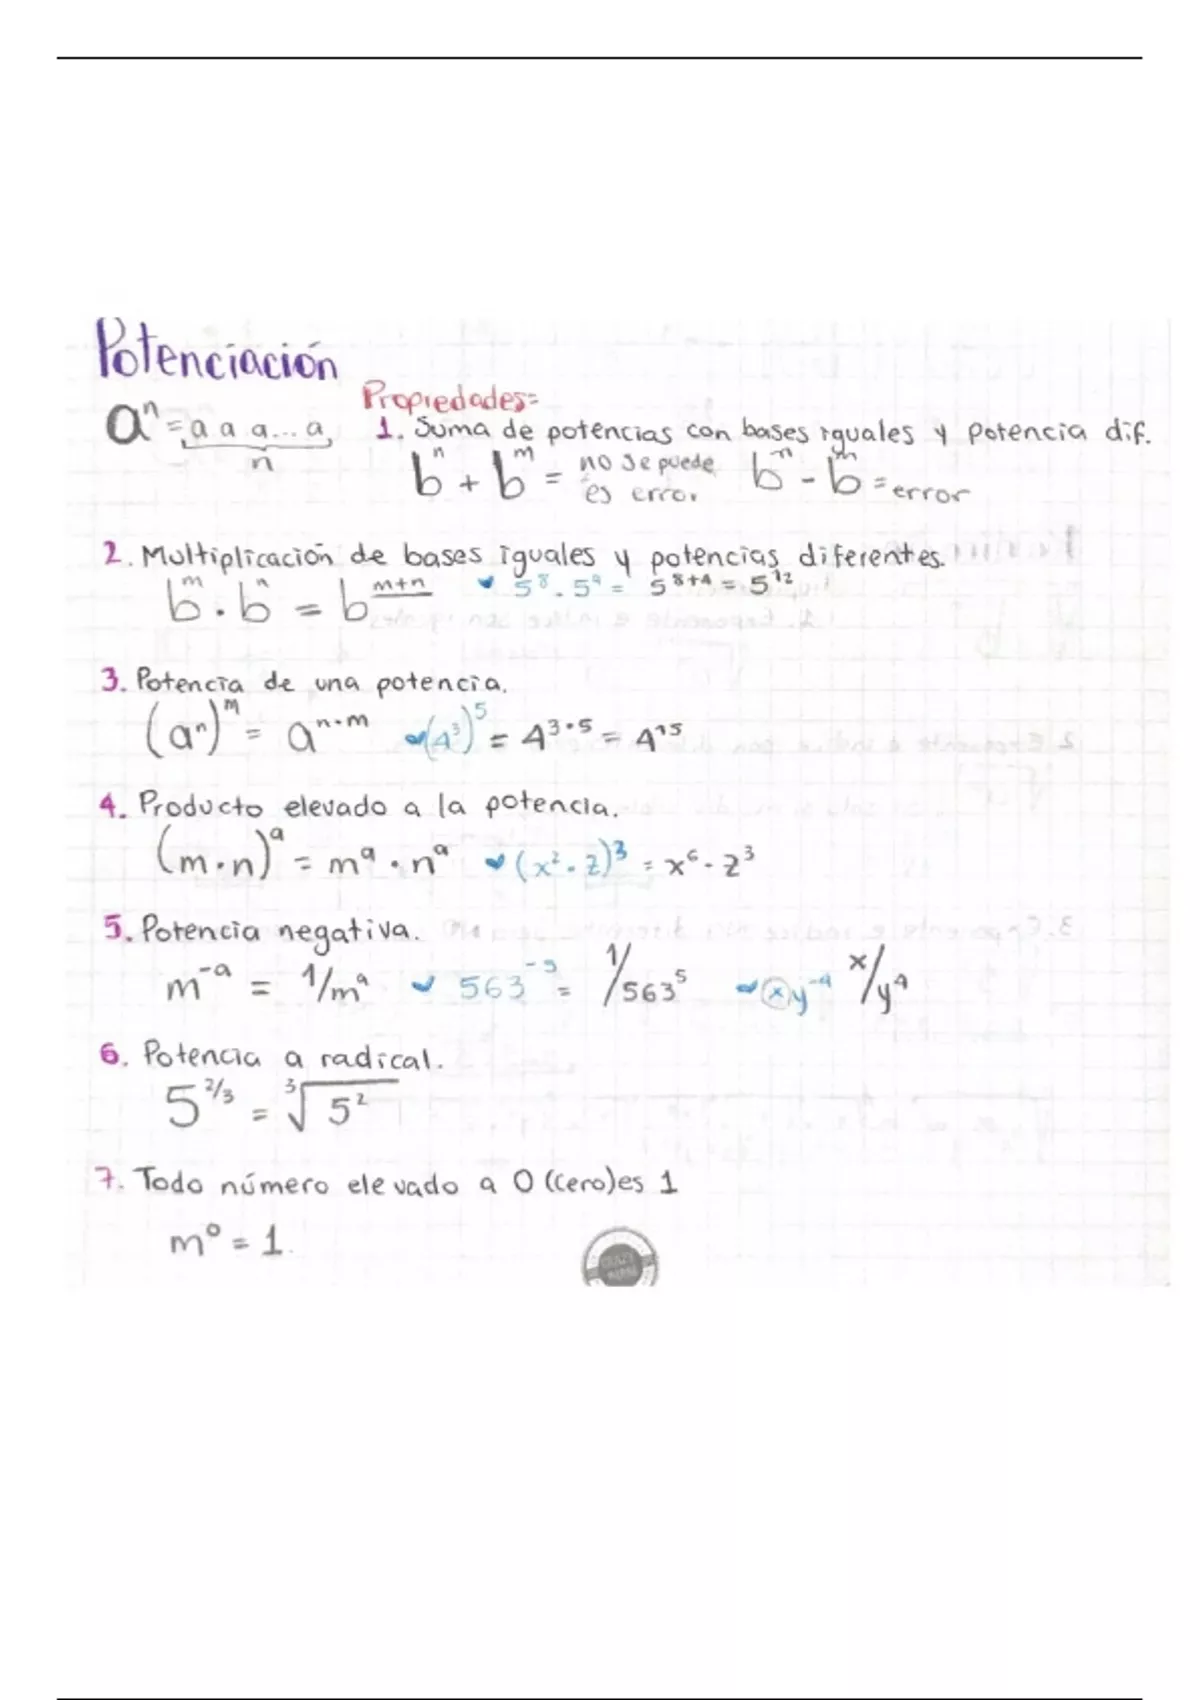 Potenciación
Propiedades:
aⁿ = a a a... a
n
1. Suma de potencias con bases iguales y potencia dif.
bⁿ + bᵐ = no se puede es error bⁿ - bᵐ = error
2. Multiplicación de bases iguales y potencias diferentes.
bᵐ · bⁿ = bᵐ⁺ⁿ 5⁸ · 5⁴ = 5⁸⁺⁴ = 5¹²
3. Potencia de una potencia.
(aⁿ)ᵐ = aⁿ·ᵐ (4³)⁵ = 4³·⁵ = 4¹⁵
4. Producto elevado a la potencia.
(m·n)ᵃ = mᵃ · nᵃ (x² · z)³ = x⁶ · z³
5. Potencia negativa.
m⁻ᵃ = 1/mᵃ 563⁻⁵ = 1/563⁵ xy⁻⁴ x/y⁴
6. Potencia a radical.
5²/³ = ³√5²
7. Todo número elevado a 0 (cero) es 1
m⁰ = 1